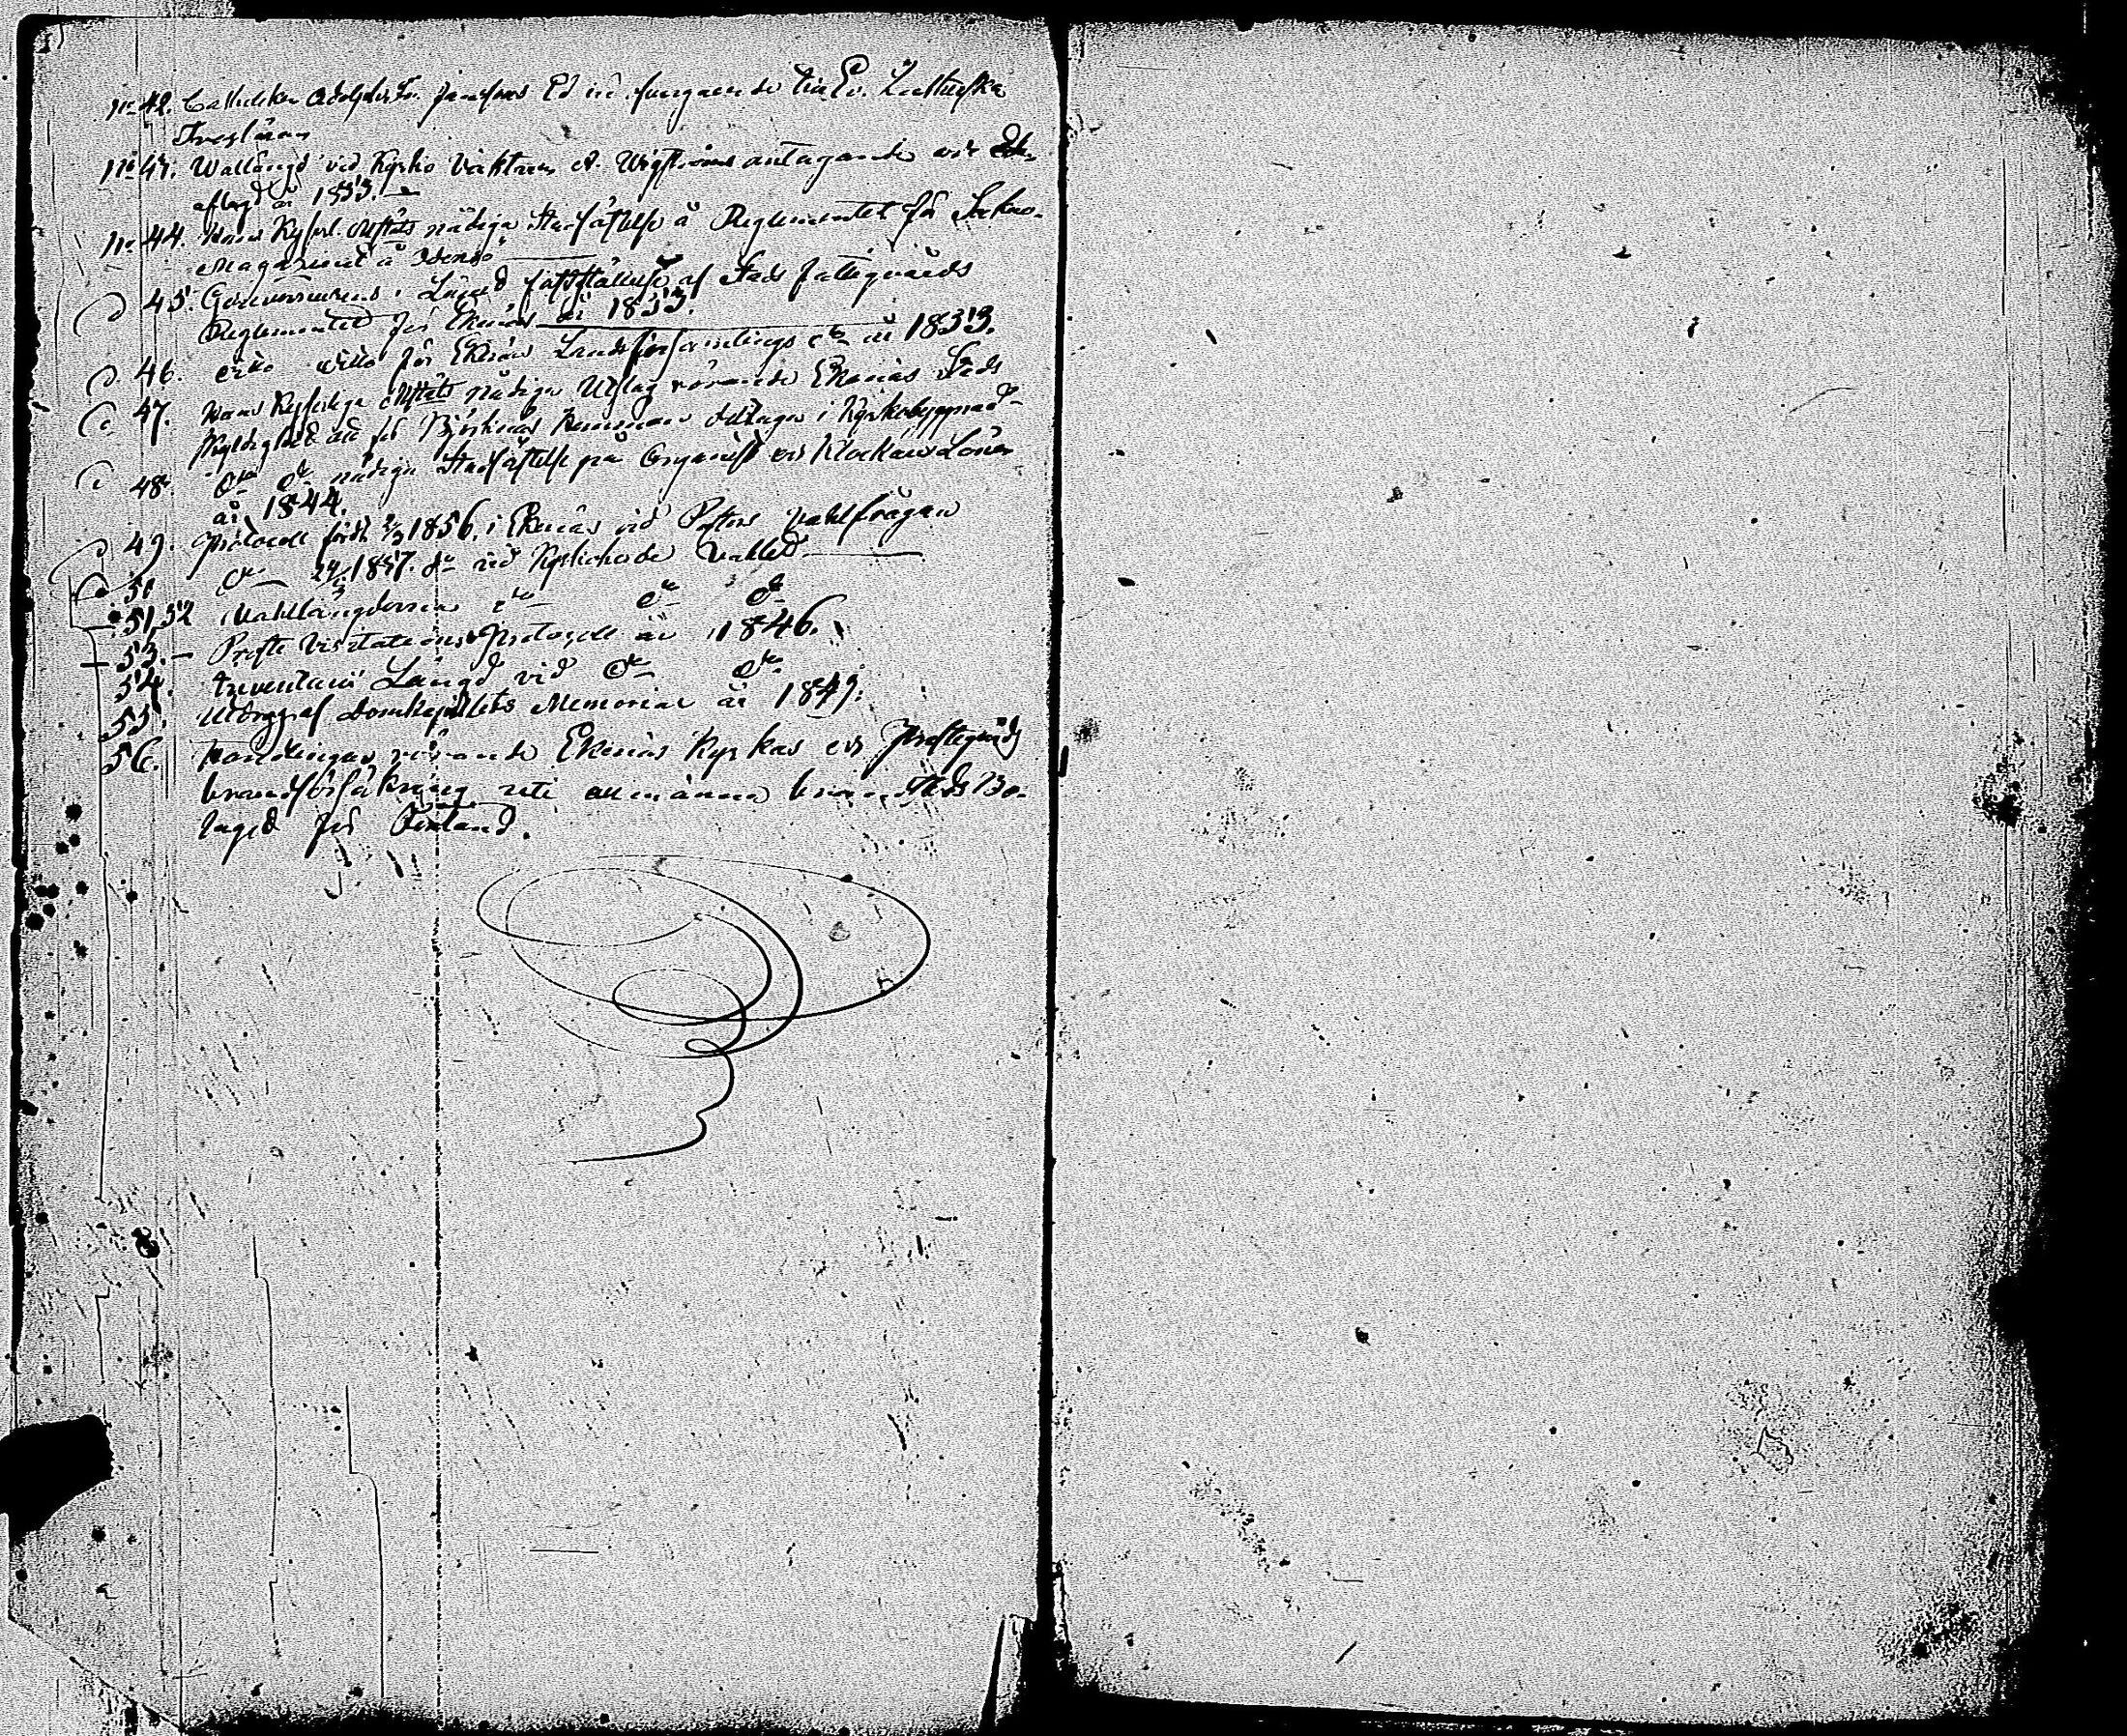 N:o 42. Catholiken Adolph Fr. Jansons Ed vid öfvergående till Ev. Lutherska
Trosläran
N:o 43. Wallängd vid Kyrko Väktaren A. Wigströms antagande
år 1853.
N:o 44. Hans Kejserl. Maj:ts nådiga Stadfästelse å Reglementet för Sockne-
Magasinet å Odensö
45. Gouverneurens i Länet fastställelse af Stads fattigvårds
Reglementet för Ekenäs år 1853.
46. dito dito för Ekenäs Landsförsamlings d:o år 1853.
47. Hans Kejserliga Maj:ts nådiga Utslag rörande Ekenäs Stads
skyldighet att för Björknäs hemman deltaga i Kyrkobyggnad
48. D:o D:o nådiga Stadfästelse på Organist och Klockare Lönen
år 1844.
49. Protocoll fördt 1856. i Ekenäs vid Pastors Vahlfrågan
50 D:o 1857. d:o vid Kyrkoherde Vahlet
51,52 Vahllängderna d:o D:o D:o
53. Proste Visitations Protocoll år 1846.
54. Inventarii Längd vid D:o D:o
55. Utdrag af Domkapitlets Memorial år 1849.
56. Handlingar rörande Ekenäs Kyrkas och Prostegårds
brandförsäkring uti allmänna brandstods Bo-
laget för Finland.